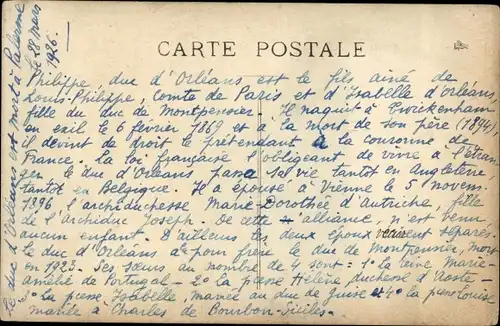 Le duc d'Orléans est mort à Palerme
le 28 mars
1926.
CARTE POSTALE
Philippe, duc d'Orléans est le fils ainé de
Louis-Philippe, Comte de Paris et d'Isabelle d'Orléans,
fille du duc de Montpensier. Il naquit à Twickenham
en exil le 6 février 1869 et à la mort de son père (1894)
il devint de droit le prétendant à la couronne de
France. La loi française l'obligeant de vivre à l'étran
ger le duc d'Orléans passa sa vie tantot en Angleterre
tantot en Belgique. Il a épousé à Vienne le 5 novemb.
1896 l'archiduchesse Marie-Dorothée d'Autriche, fille
de l'Archiduc Joseph. De cette alliance, n'est venu
aucun enfant. D'ailleurs les deux époux vivent séparés.
le duc d'Orléans a pour frère le duc de Montpensier, mort
en 192. Ses sœurs au nombre de 4 sont: 1° la reine Marie-
amélie de Portugal - 2° la psse Hélène duchesse d'Aoste -
3° la psse Isabelle, mariée au duc de Guise et 4° la psse Louise
mariée à Charles de Bourbon-Siciles.